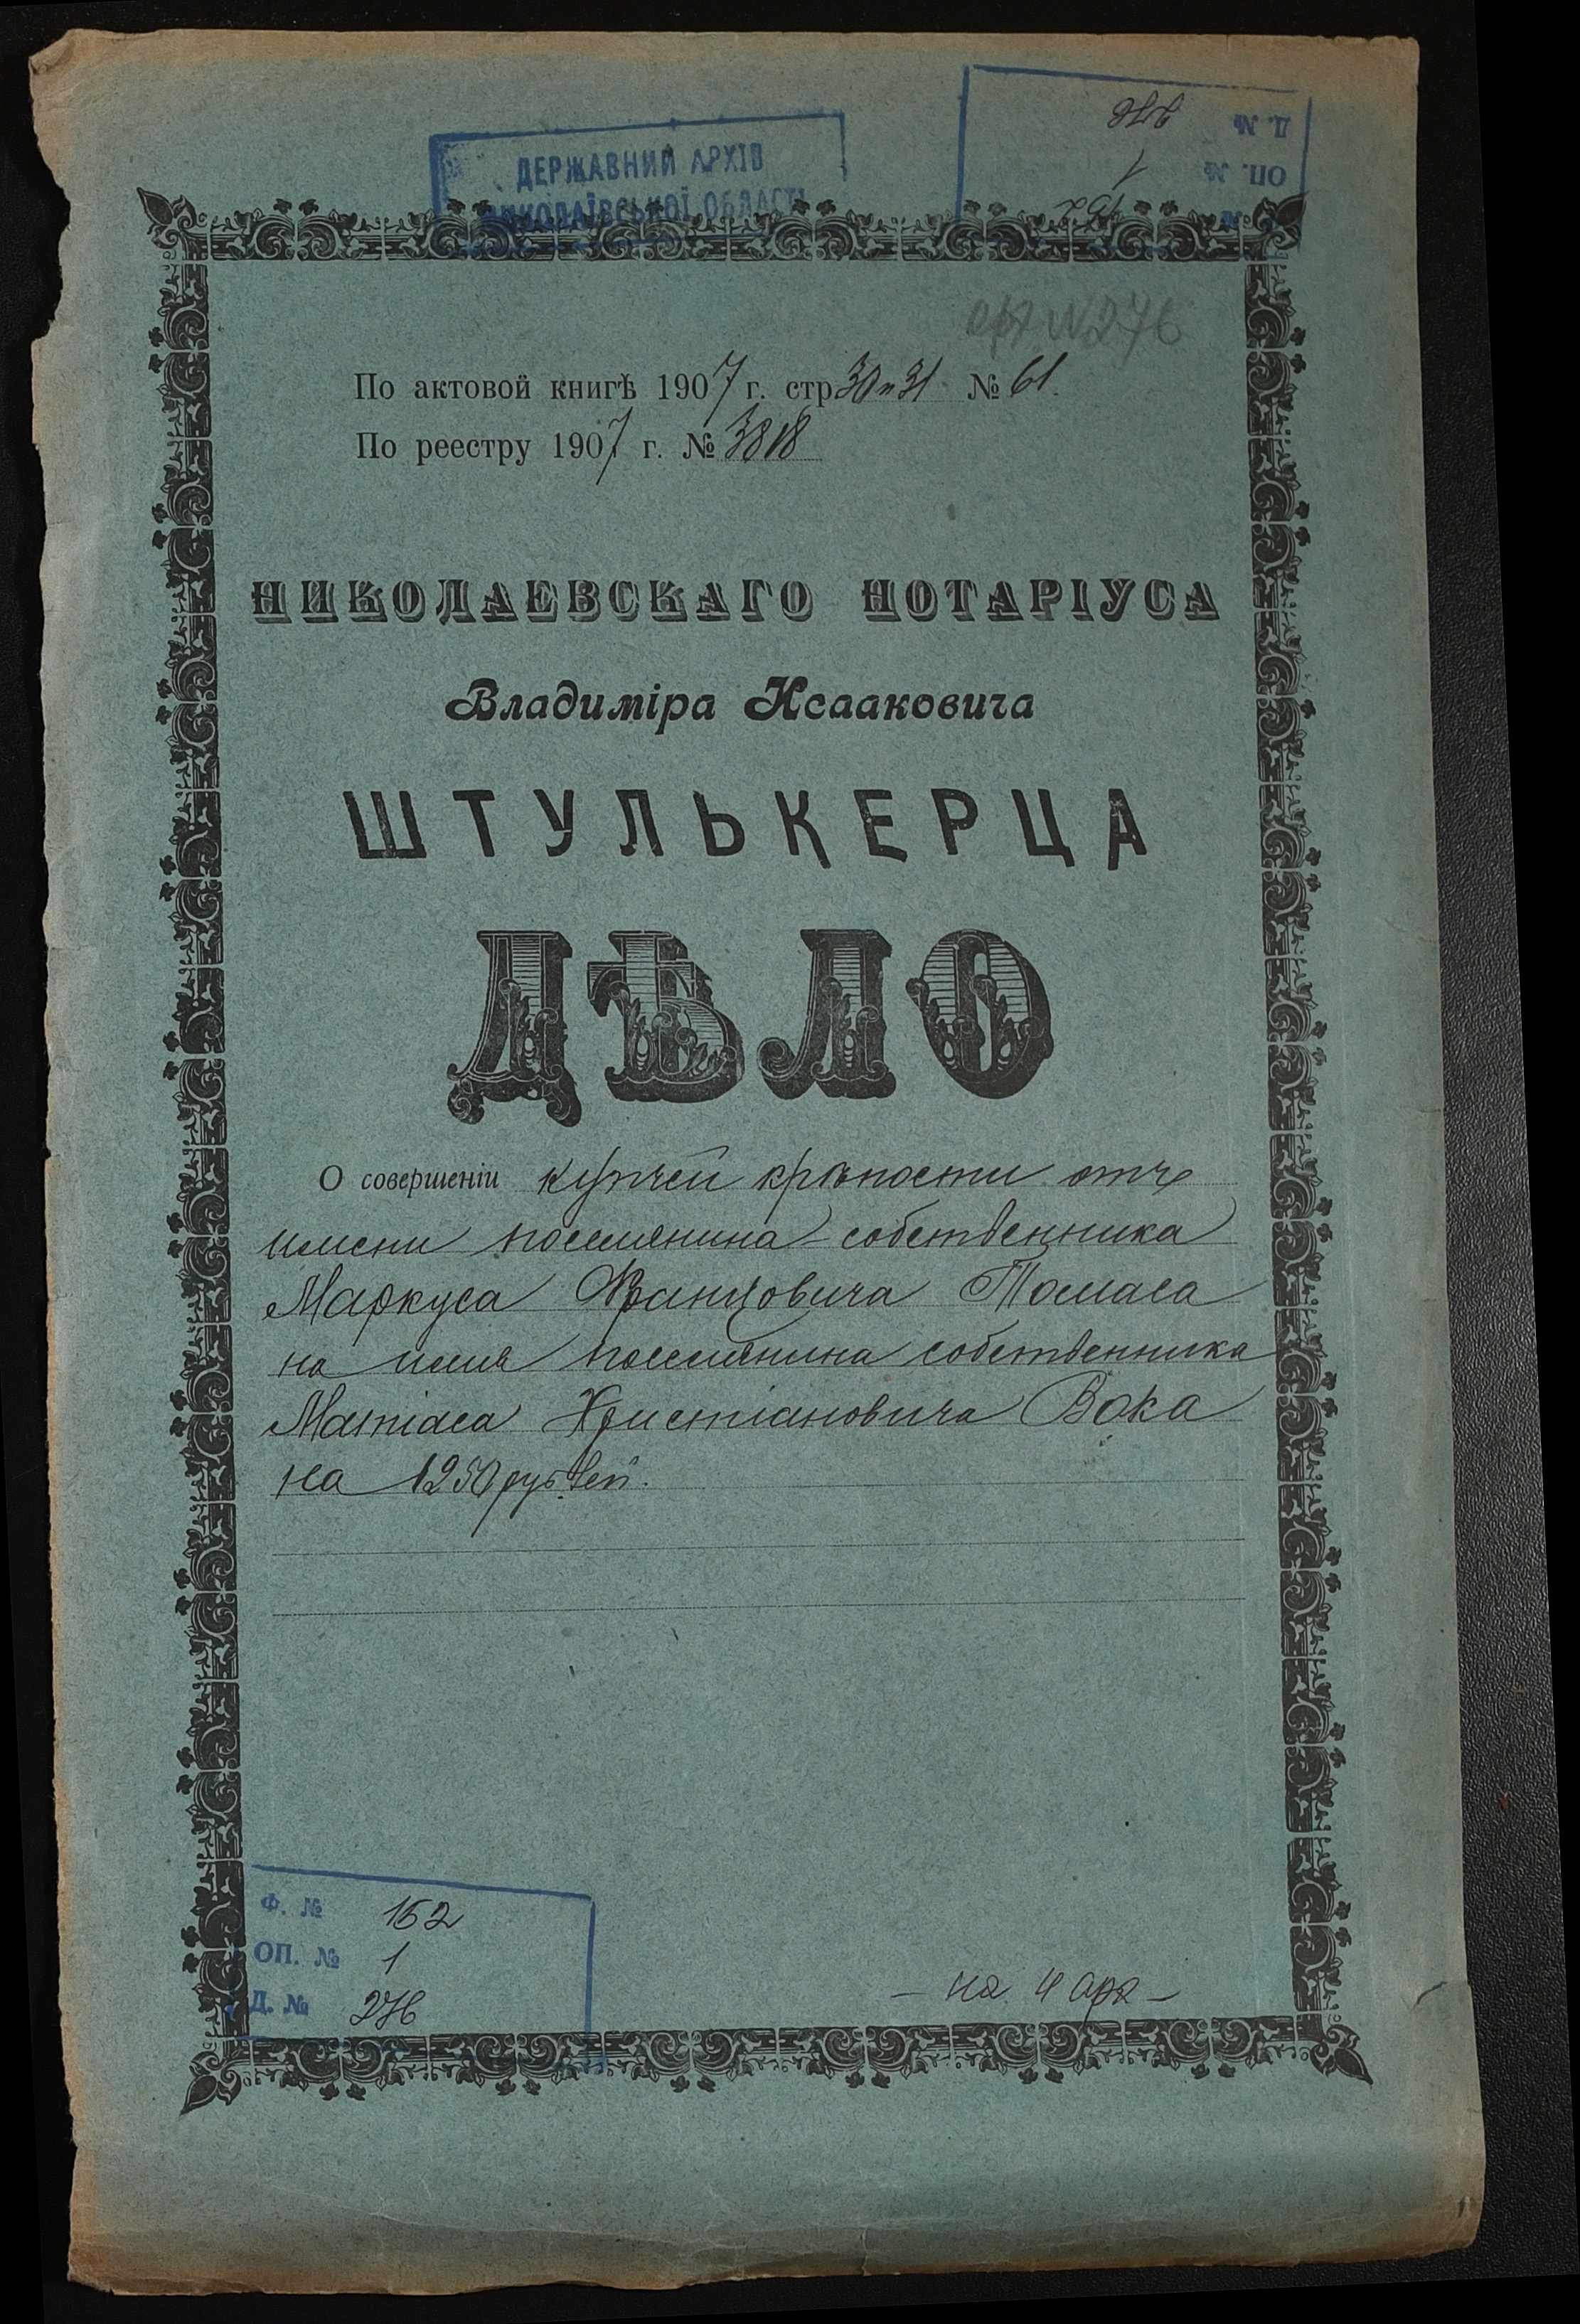 ДЕРЖАВНИЙ АРХІВ
МИКОЛАЇВСЬКОЇ ОБЛАСТІ
Д. № 276
ОП. № 1
162
№ 276
По актовой книгѣ 1907 г. стр 30 и 31 № 61.
По реестру 1907 г. № 3818
НИКОЛАЕВСКАГО НОТАРІУСА
Владиміра Исааковича
ШТУЛЬКЕРЦА
ДѢЛО
О совершеніи купчей крѣпости отъ
имени поселянина-собственника
Маркуса Францовича Томаса
на имя поселянина собственника
Матіаса Христіановича Вока
на 1250 рублей.
Ф. № 162
ОП. № 1
Д. № 276
– на 4 арк –